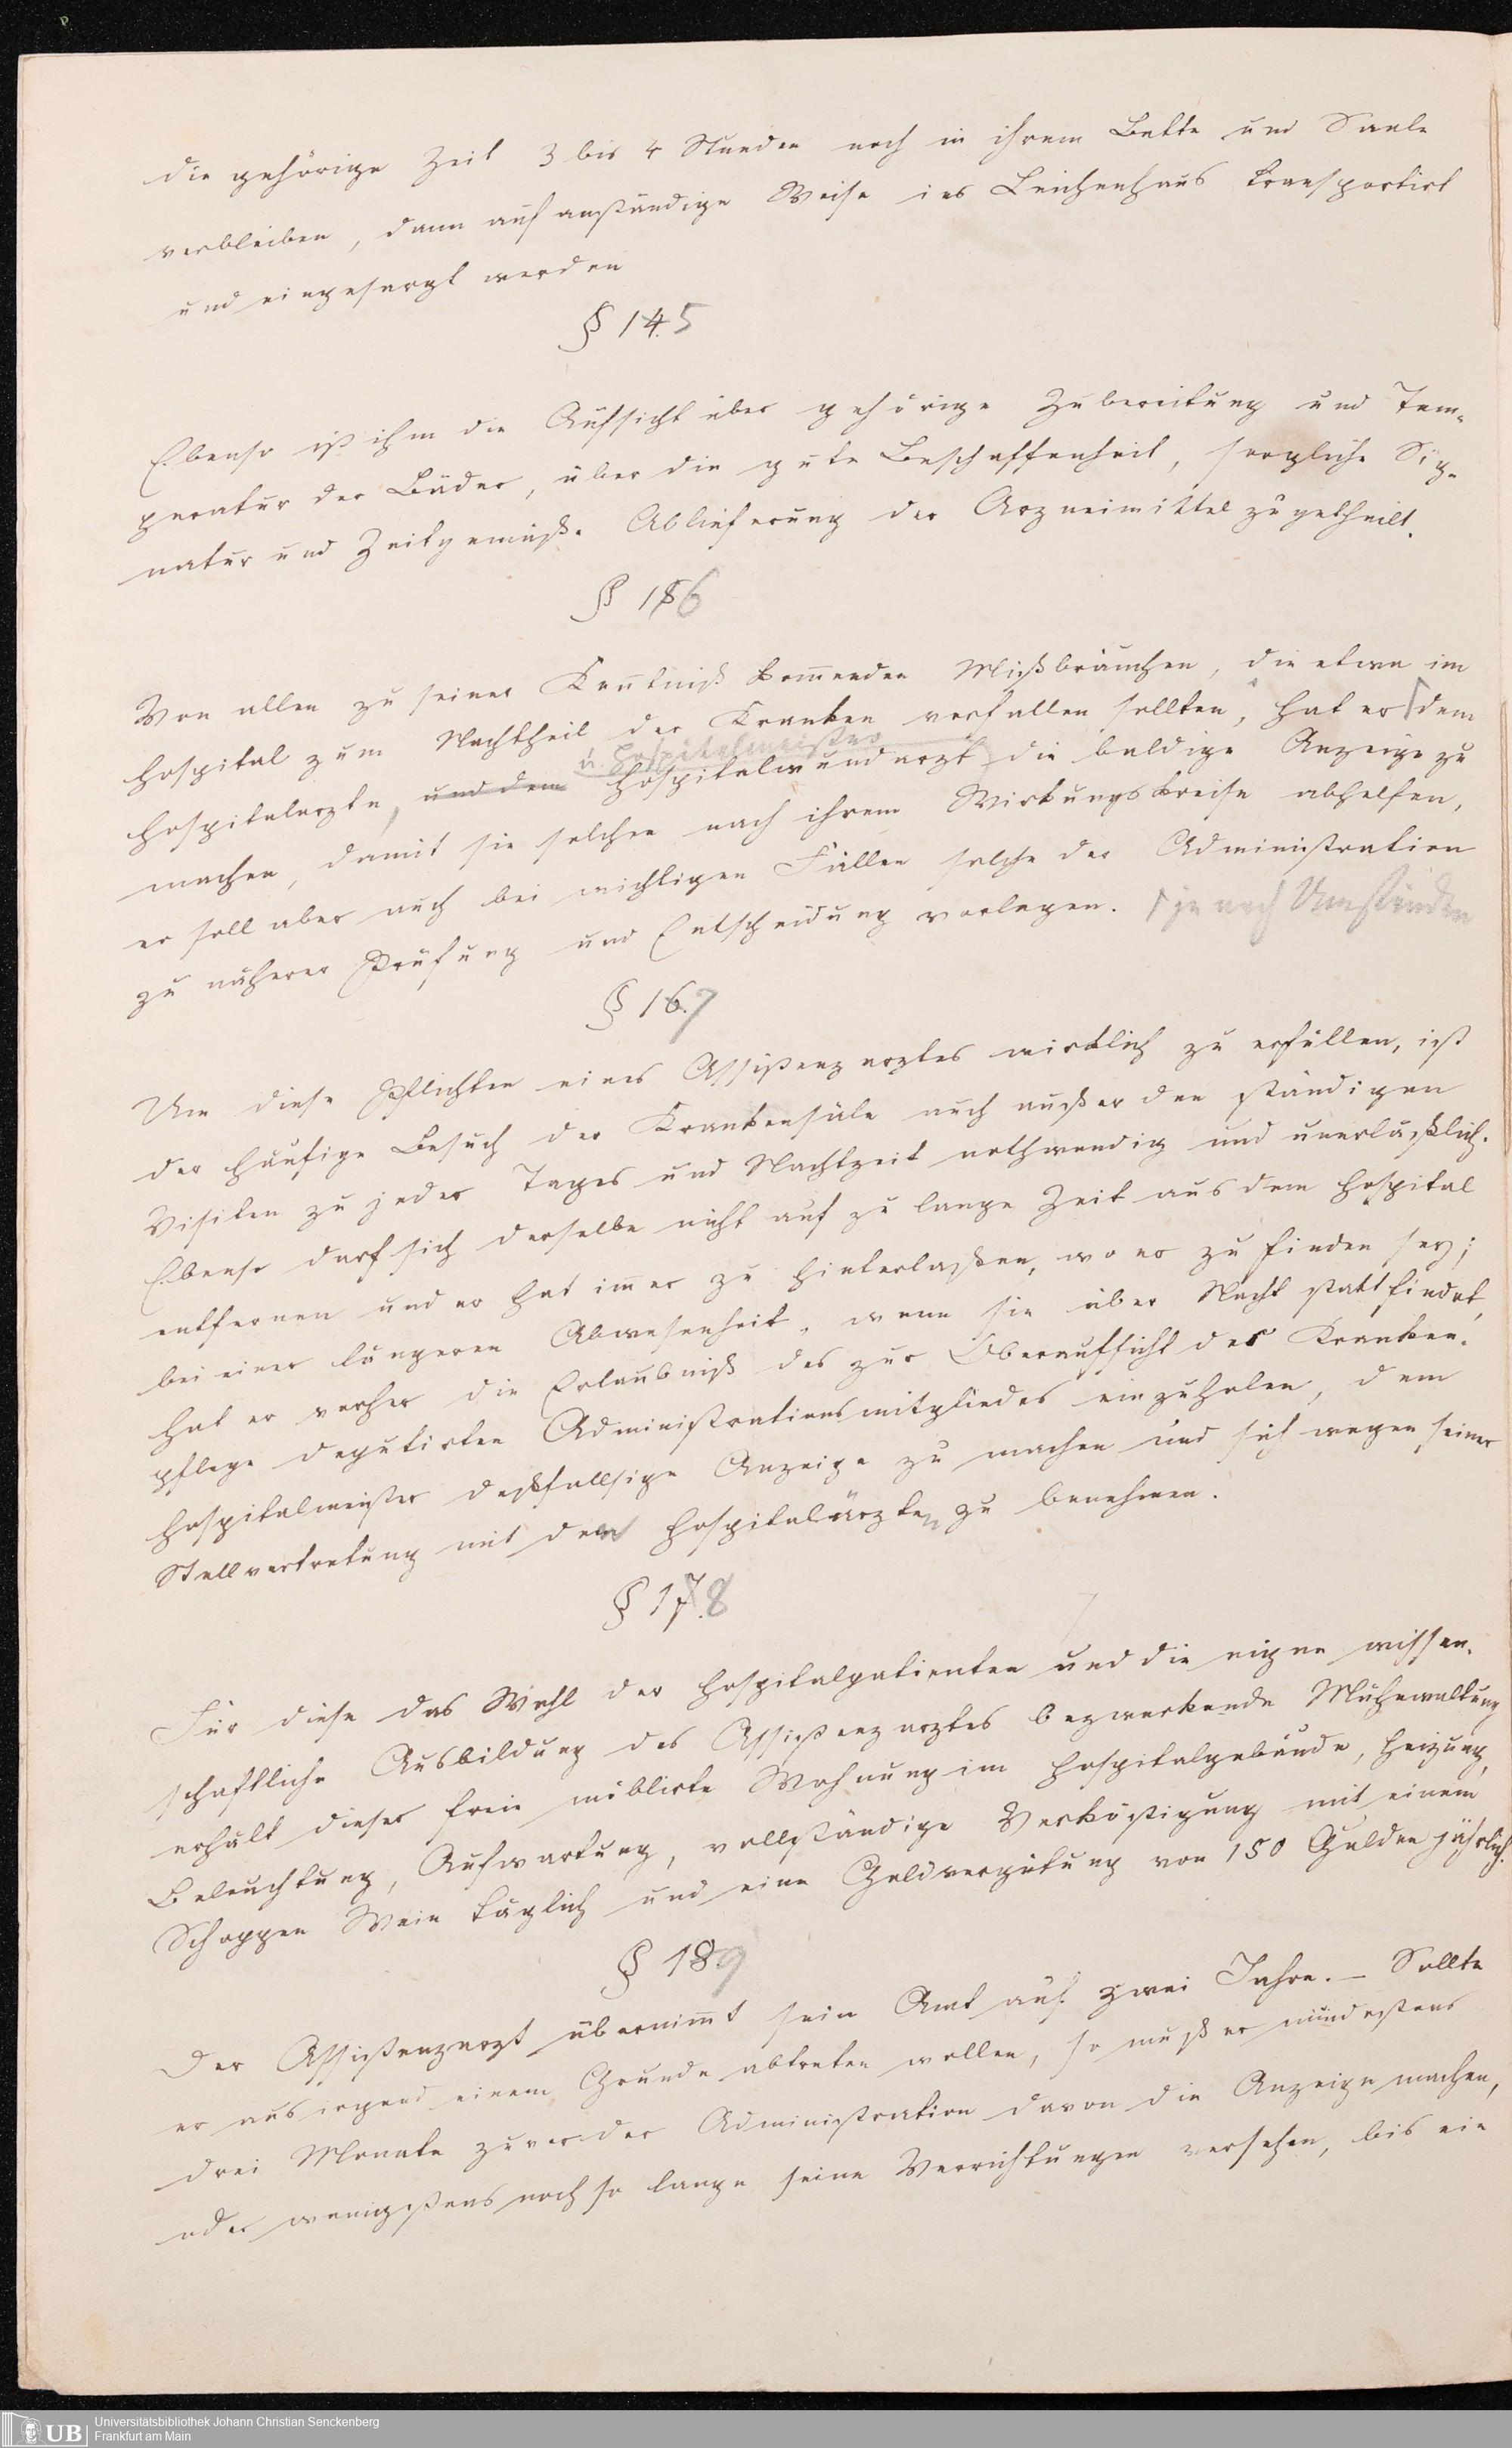 die gehörige Zeit 3 bis 4 Stunden noch in ihrem Bette und Saale
verbleiben, dann auf anständige Weise ins Leichenhaus transportirt
und eingesargt werden
§ 14. 5
Ebenso ist ihm die Aufsicht über gehörige Zubereitung und Tem-
peratur der Bäder, über die gute Beschaffenheit, sorgliche Sig-
natur und Zeitgemäße Ablieferung der Arzneimittel zugetheilt.
§ 156
Von allen zu seiner Kenntniß kommenden Mißbräuchen, die etwa im
Hospital zum Nachtheil der Kranken vorfallen sollten, hat er ⌈dem
u. Hospitalmeister
Hospitalarzte, und dem Hospitalwundarzt die baldige Anzeige zu
machen, damit sie solchen nach ihrem Wirkungskreise abhelfen,
er soll aber auch bei wichtigen Fällen solche der Administration
zu näherer Prüfung und Entscheidung vorlegen. ⌈je nach Umständen
§ 16. 7
Um diese Pflichten eines Assistenzarztes wirklich zu erfüllen, ist
der häufige Besuch der Krankensäle auch außer den ständigen
Visiten zu jeder Tages und Nachtzeit nothwendig und unerläßlich.
Ebenso darf sich derselbe nicht auf zu lange Zeit aus dem Hospital
entfernen und er hat immer zu hinterlaßen, wo er zu finden sey;
bei einer längeren Abwesenheit, wenn sie über Nacht stattfindet,
hat er vorher die Erlaubniß des zur Oberaufsicht der Kranken-
pflege deputirten Administrationsmitgliedes einzuholen, dem
Hospitalmeister deßfallsige Anzeige zu machen und sich wegen seiner
Stellvertretung mit den Hospitalärzten zu benehmen.
§ 17. 8
Für diese das Wohl der Hospitalpatienten und die eigne wissen-
schaftliche Ausbildung des Assistenzarztes bezweckende Mühewaltung
erhält dieser freie möblirte Wohnung im Hospitalgebäude, Heizung,
Beleuchtung, Aufwartung, vollständige Verköstigung mit einem
Schoppen Wein täglich und eine Geldvergütung von 150 Gulden jährlich.
§ 18 9
Der Assistenzarzt übernimmt sein Amt auf zwei Jahre. – Sollte
er aus irgend einem Grunde abtreten wollen, so muß er mindestens
drei Monate zuvor der Administration davon die Anzeige machen,
oder wenigstens noch so lange seine Verrichtungen versehen, bis ein
UB
Universitätsbibliothek Johann Christian Senckenberg
Frankfurt am Main